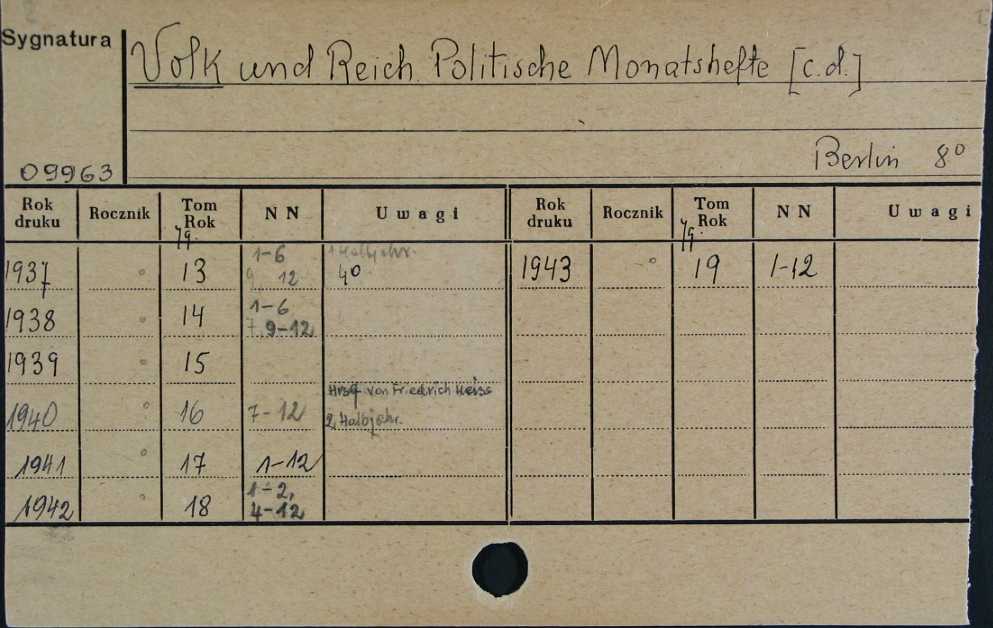 Sygnatura
Volk und Reich. Politische Monatshefte [c.d.]
09963
Berlin 8°
Rok druku Rocznik Tom Rok NN Uwagi Rok druku Rocznik Tom Rok NN Uwagi
Jg. Jg.
1937 ° 13 1-6 1 Halbjahr. 1943 ° 19 1-12
9, 12 4°
1938 ° 14 1-6
7, 9-12
1939 ° 15
Hrsg von Friedrich Heiss
1940 ° 16 7-12 2, Halbjahr.
1941 ° 17 1-12
1942 ° 18 1-2,
4-12